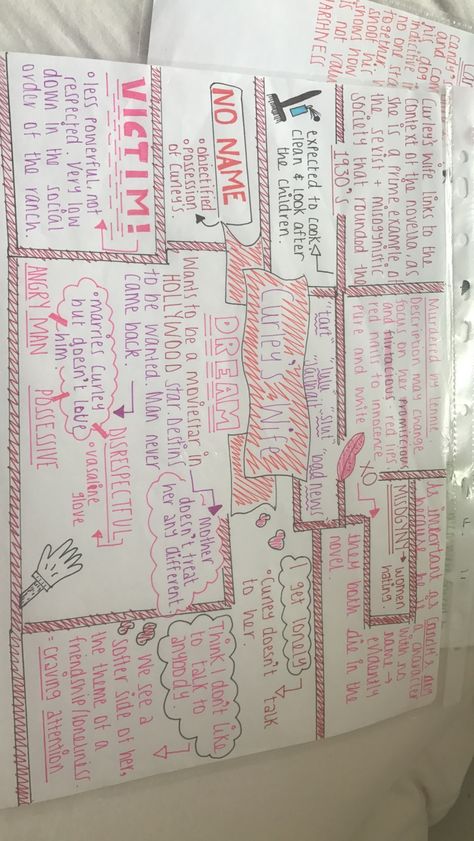 Curley's wife links to the
context of the novella, as
she is a prime example of
the sexist + misogynistic
society that rounded the
1930's
expected to cook,
clean & look after
the children.
NO NAME
• objectified
• Possession
of Curley's.
VICTIM!
• less powerful, not
respected. Very low
down in the social
order of the ranch.
Murdered by Lennie.
Description may change
focus on her promiscuous
and flirtacious - red lips,
red nails to innocence
Pure and white
"tart"
"slut"
"bad news"
Curley's Wife
DREAM
Wants to be a moviestar in
HOLLYWOOD star. Destins
to be wanted. Man never
came back.
Mother
doesn't treat
her any different.
DISRESPECTFUL
• marries Curley
but doesn't love
him.
• vasaline
glove
ANGRY MAN
POSSESSIVE
As important as Candy's dog
character
with no
name →
eventually
they both die in the
novel.
woman
hating.
XO
I get lonely
• Curley doesn't talk
to her.
Think I don't like
to talk to
anybody.
We see a
softer side of her,
the theme of a
friendship/lonliness.
= craving attention
Candy's
his dog
no one
together.
shoot her
shows how
is not
HARSHNESS